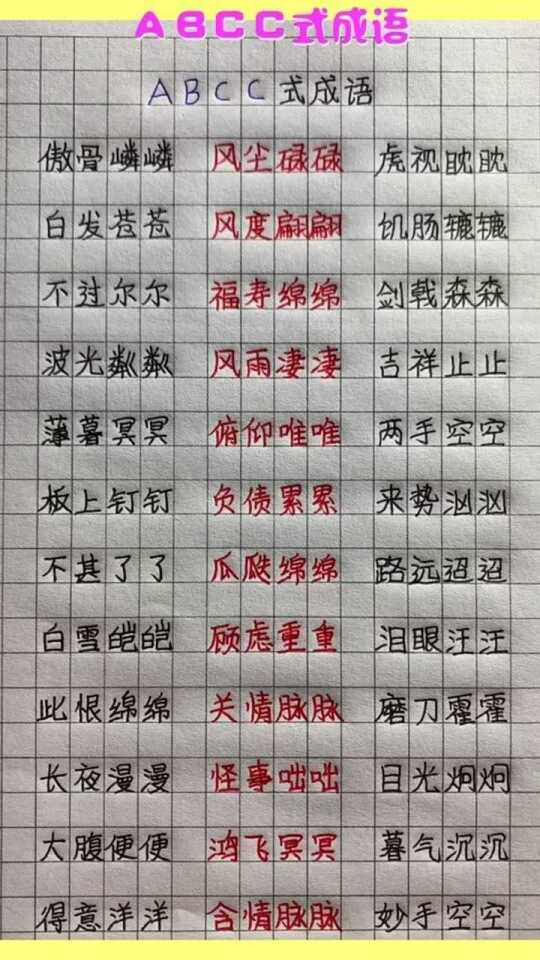 ABCC式成语
ABCC式成语
傲骨嶙嶙 风尘碌碌 虎视眈眈
白发苍苍 风度翩翩 饥肠辘辘
不过尔尔 福寿绵绵 剑戟森森
波光粼粼 风雨凄凄 吉祥止止
薄暮冥冥 俯仰唯唯 两手空空
板上钉钉 负债累累 来势汹汹
不甚了了 瓜瓞绵绵 路远迢迢
白雪皑皑 顾虑重重 泪眼汪汪
此恨绵绵 关情脉脉 磨刀霍霍
长夜漫漫 怪事咄咄 目光炯炯
大腹便便 鸿飞冥冥 暮气沉沉
得意洋洋 含情脉脉 妙手空空